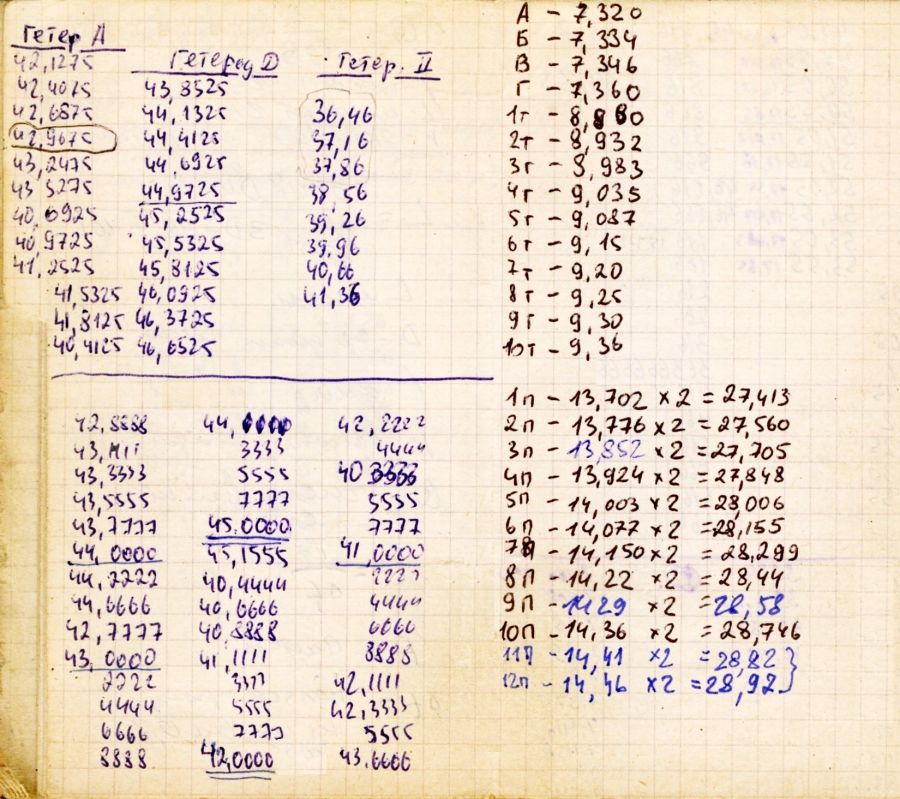 Гетер А
42,1275
42,4075
42,6875
42,9675
43,2475
43 5275
40,6925
40,9725
41,2525
41,5325
41,8125
40,4125
Гетерод D
43,8525
44,1325
44,4125
44,6925
44,9725
45,2525
45,5325
45,8125
46,0925
46,3725
46,6525
Гетер. II
36,46
37,16
37,86
38,56
39,26
39,96
40,66
41,36
42,8888
43,1111
43,3333
43,5555
43,7777
44,0000
44,2222
44,6666
42,7777
43,0000
2222
4444
6666
8888
44,0000
3333
5555
7777
45.0000
45,1555
40,4444
40,6666
40,8888
41,1111
3333
5555
7777
42,0000
42,2222
4444
40 3333
5555
7777
41,0000
2222
4444
6666
8888
42,1111
42,3333
5555
43.6666
А - 7,320
Б - 7,334
В - 7,346
Г - 7,360
1т - 8,880
2т - 8,932
3т - 8,983
4т - 9,035
5т - 9,087
6т - 9,15
7т - 9,20
8т - 9,25
9т - 9,30
10т - 9,36
1п - 13,702 ×2 = 27,413
2п - 13,776 ×2 = 27,560
3п - 13,852 ×2 = 27,705
4п - 13,924 ×2 = 27,848
5п - 14,003 ×2 = 28,006
6п - 14,077 ×2 = 28,155
7п - 14,150 ×2 = 28,299
8п - 14,22 ×2 = 28,44
9п - 1429 ×2 = 28,58
10п - 14,36 ×2 = 28,746
11п - 14,41 ×2 = 28,82}
12п - 14,46 ×2 = 28,92}